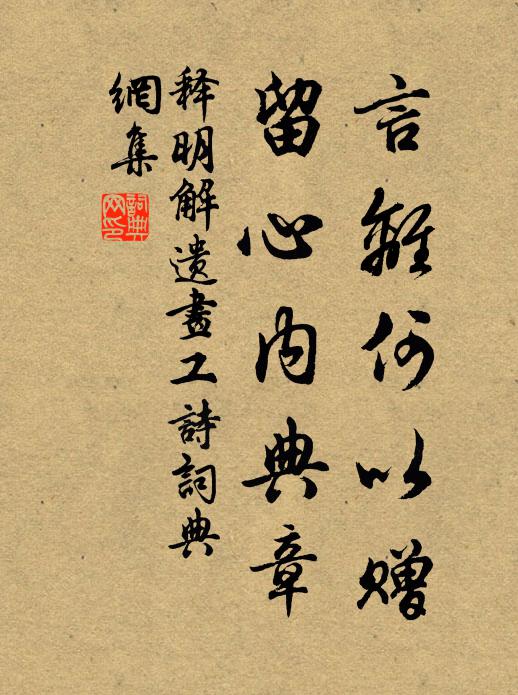 言離何以贈
留心内典章
释明解遺畫工詩詞典
網集
詞典
网印